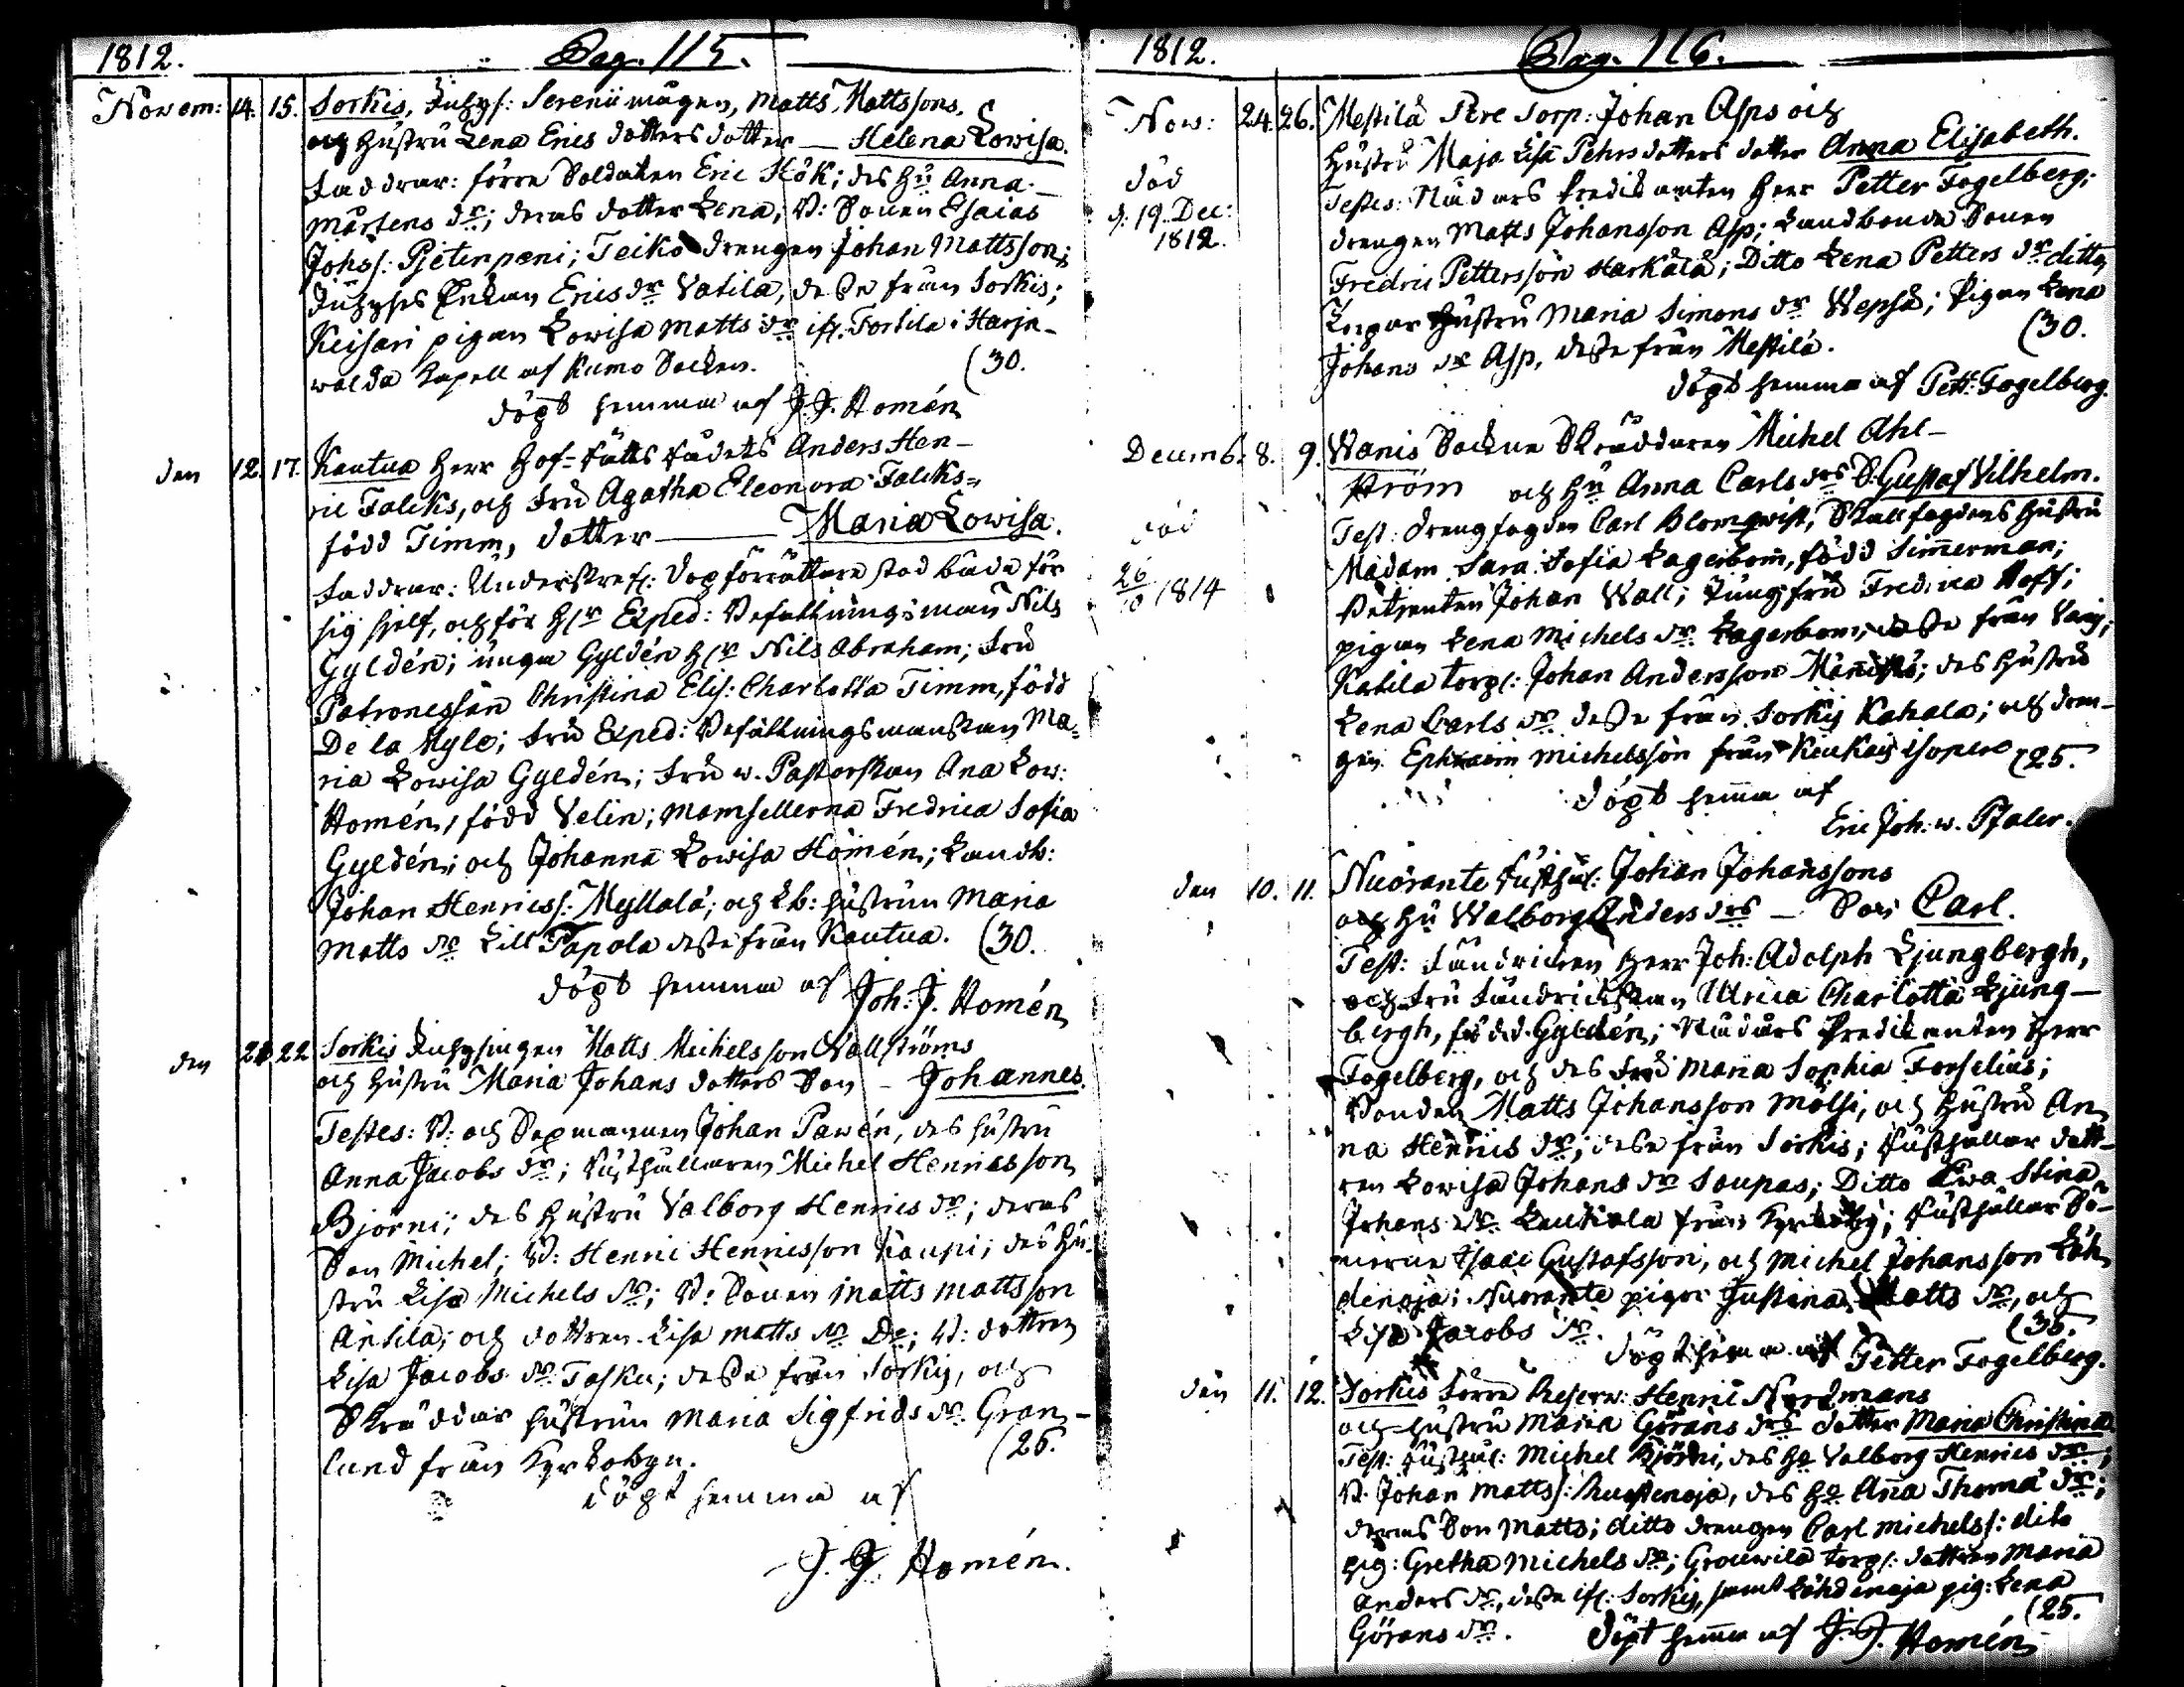 1812. Pag. 115.
Novem: 14. 15. Sorkis, Inhys: Sereniimågen, Matts Mattssons,
och hustru Lena Erics dotters dotter — Helena Lowisa.
Faddrar: förre Soldaten Eric Kök; des hu Anna
Mårtens dr; deras dotter Lena; B: Sonen Esaias
Johss: Pjeterpæni; Teiko drengen Johan Mattsson;
Inhyses Enkan Erics dr Vatila, desse från Sorkis;
Keisari pigan Lowisa Matts dr ifr. Torttila i Harja-
walda Capell af Kumo Socken. (30.
döpt hemma af J. J. Homén
den 12. 17. Kautua Herr Hof-Rätts Rådets Anders Hen-
ric Falcks, och Fru Agatha Eleonora Falcks-
född Timm, dotter — Maria Lowisa.
Faddrar: Underskrefs: dopförrättare stod både för
sig sjelf, och för H/r Exped: Befallningsman Nils
Gyldén; unga Gyldén H/r Nils Abraham; Fru
Patronessan Christina Elis: Charlotta Timm, född
De la Myle; Fru Exped: Befallningsmanskan Ma-
ria Lowisa Gyldén; Fru v. Pastorskan Ana Low:
Homén, född Velin; Mamsellerna Fredrica Sofia
Gyldén; och Johanna Lowisa Homén; Landb:
Johan Henricss: Myllalä; och Lb: hustrun Maria
Matts dr Lill Papola desse från Kautua. (30.
döpt hemma af Joh: J. Homén
den 21 22 Sorkis Inhysingen Matts Michelsson Wallströms
och hustru Maria Johans dotters Son — Johannes.
Testes: B: och Sexmannen Johan Pawén, des hustru
Anna Jacobs dr; Rusthållaren Michel Henricsson
Björni; des hustru Valborg Henrics dr; deras
Son Michel; B: Henric Henricsson Kaupi; des hu-
stru Lisa Michels dr; B: Sonen Matts Mattsson
Antila; och dottren Lisa Matts dr Do; B: dottren
Lisa Jacobs dr Tasku; desse från Sorkis, och
Skräddar hustrun Maria Sigfrids dr Gran-
lund från Kyrkobyn. (26.
döpt hemma af
J. J. Homén.
1812. Pag. 116.
Nov: 24. 26. Mestilä Sore Torp: Johan Asps och
hustru Maja Lisa Pehrs dotters dotter Anna Elisabeth.
död
d: 19. Dec:
1812.
Testes: Nådårs Predikanten Herr Petter Fogelberg;
drengen Matts Johansson Asp; Landbonde Sonen
Fredric Pettersson Harkälä; Ditto Lena Petters dr ditto,
Korpar hustru Maria Simons dr Wepsä; Pigan Lena
Johans dr Asp, desse från Mestilä. (30.
döpt hemma af Pett: Fogelberg.
Decemb. 8. 9. Wanis Sockne Skräddaren Michel Ahl-
ström och hu Anna Carls drs S: Gustaf Vilhelm.
död
26/10 1814
Test: drengfogden Carl Blomqwist, Skallfogdens hustru
Madam Sara Sofia Lagerbom, född Simmerman;
Johan Wall; Jungfru Fredrica Hoff;
pigan Lena Michels dr Lagerbom, desse från Vanj;
Katila torp: Johan Andersson Männistö; des hustru
Lena Carls dr desse från Sorkij Kahala; och dren-
gen Ephraim Michelsson från Keukais Isopere (25.
döpt hemma af
Eric Joh: v. Pfaler.
den 10. 11. Nuorante Rusthål: Johan Johanssons
och hu Walborg Anders drs — Son Carl.
Test: Fändricken Herr Joh: Adolph Ljungbergh,
och Fru Fändrickskan Ulrica Charlotta Ljung-
bergh, född Gyldén; Nådårs Predikanten Herr
Fogelberg, och des Fru Maria Sophia Forselius;
Bonden Matts Johansson Mölsi, och hustru An-
na Henrics dr; desse från Sorkis; Rusthållar dott-
ren Lowisa Johans dr Saupas; Ditto Ewa Stina
Johans dr Lautiala från Kyrkoby; Rusthållar Sö-
nerne Isaac Gustafsson, och Michel Johansson Löh-
denoja; Nuorante pigor Justina Matts dr, och
Lisa Jacobs dr. (35.
döpt hemma af Petter Fogelberg.
den 11. 12. Sorkis Förre Reserv: Henric Nordmans
och hustru Maria Görans drs dotter Maria Christina.
Test: Rusthål: Michel Björni, des hu Valborg Henrics dr;
B: Johan Mattss: Ruostenoja, des hu Anna Thoma dr;
deras Son Matts; ditto drengen Carl Michelss: dito
pig: Gretha Michels dr; Grouwila torps: dottren Maria
Anders dr, desse ifr: Sorkis, samt Löhdenoja pig: Lena
Görans dr. (25.
döpt hemma af J. J. Homén